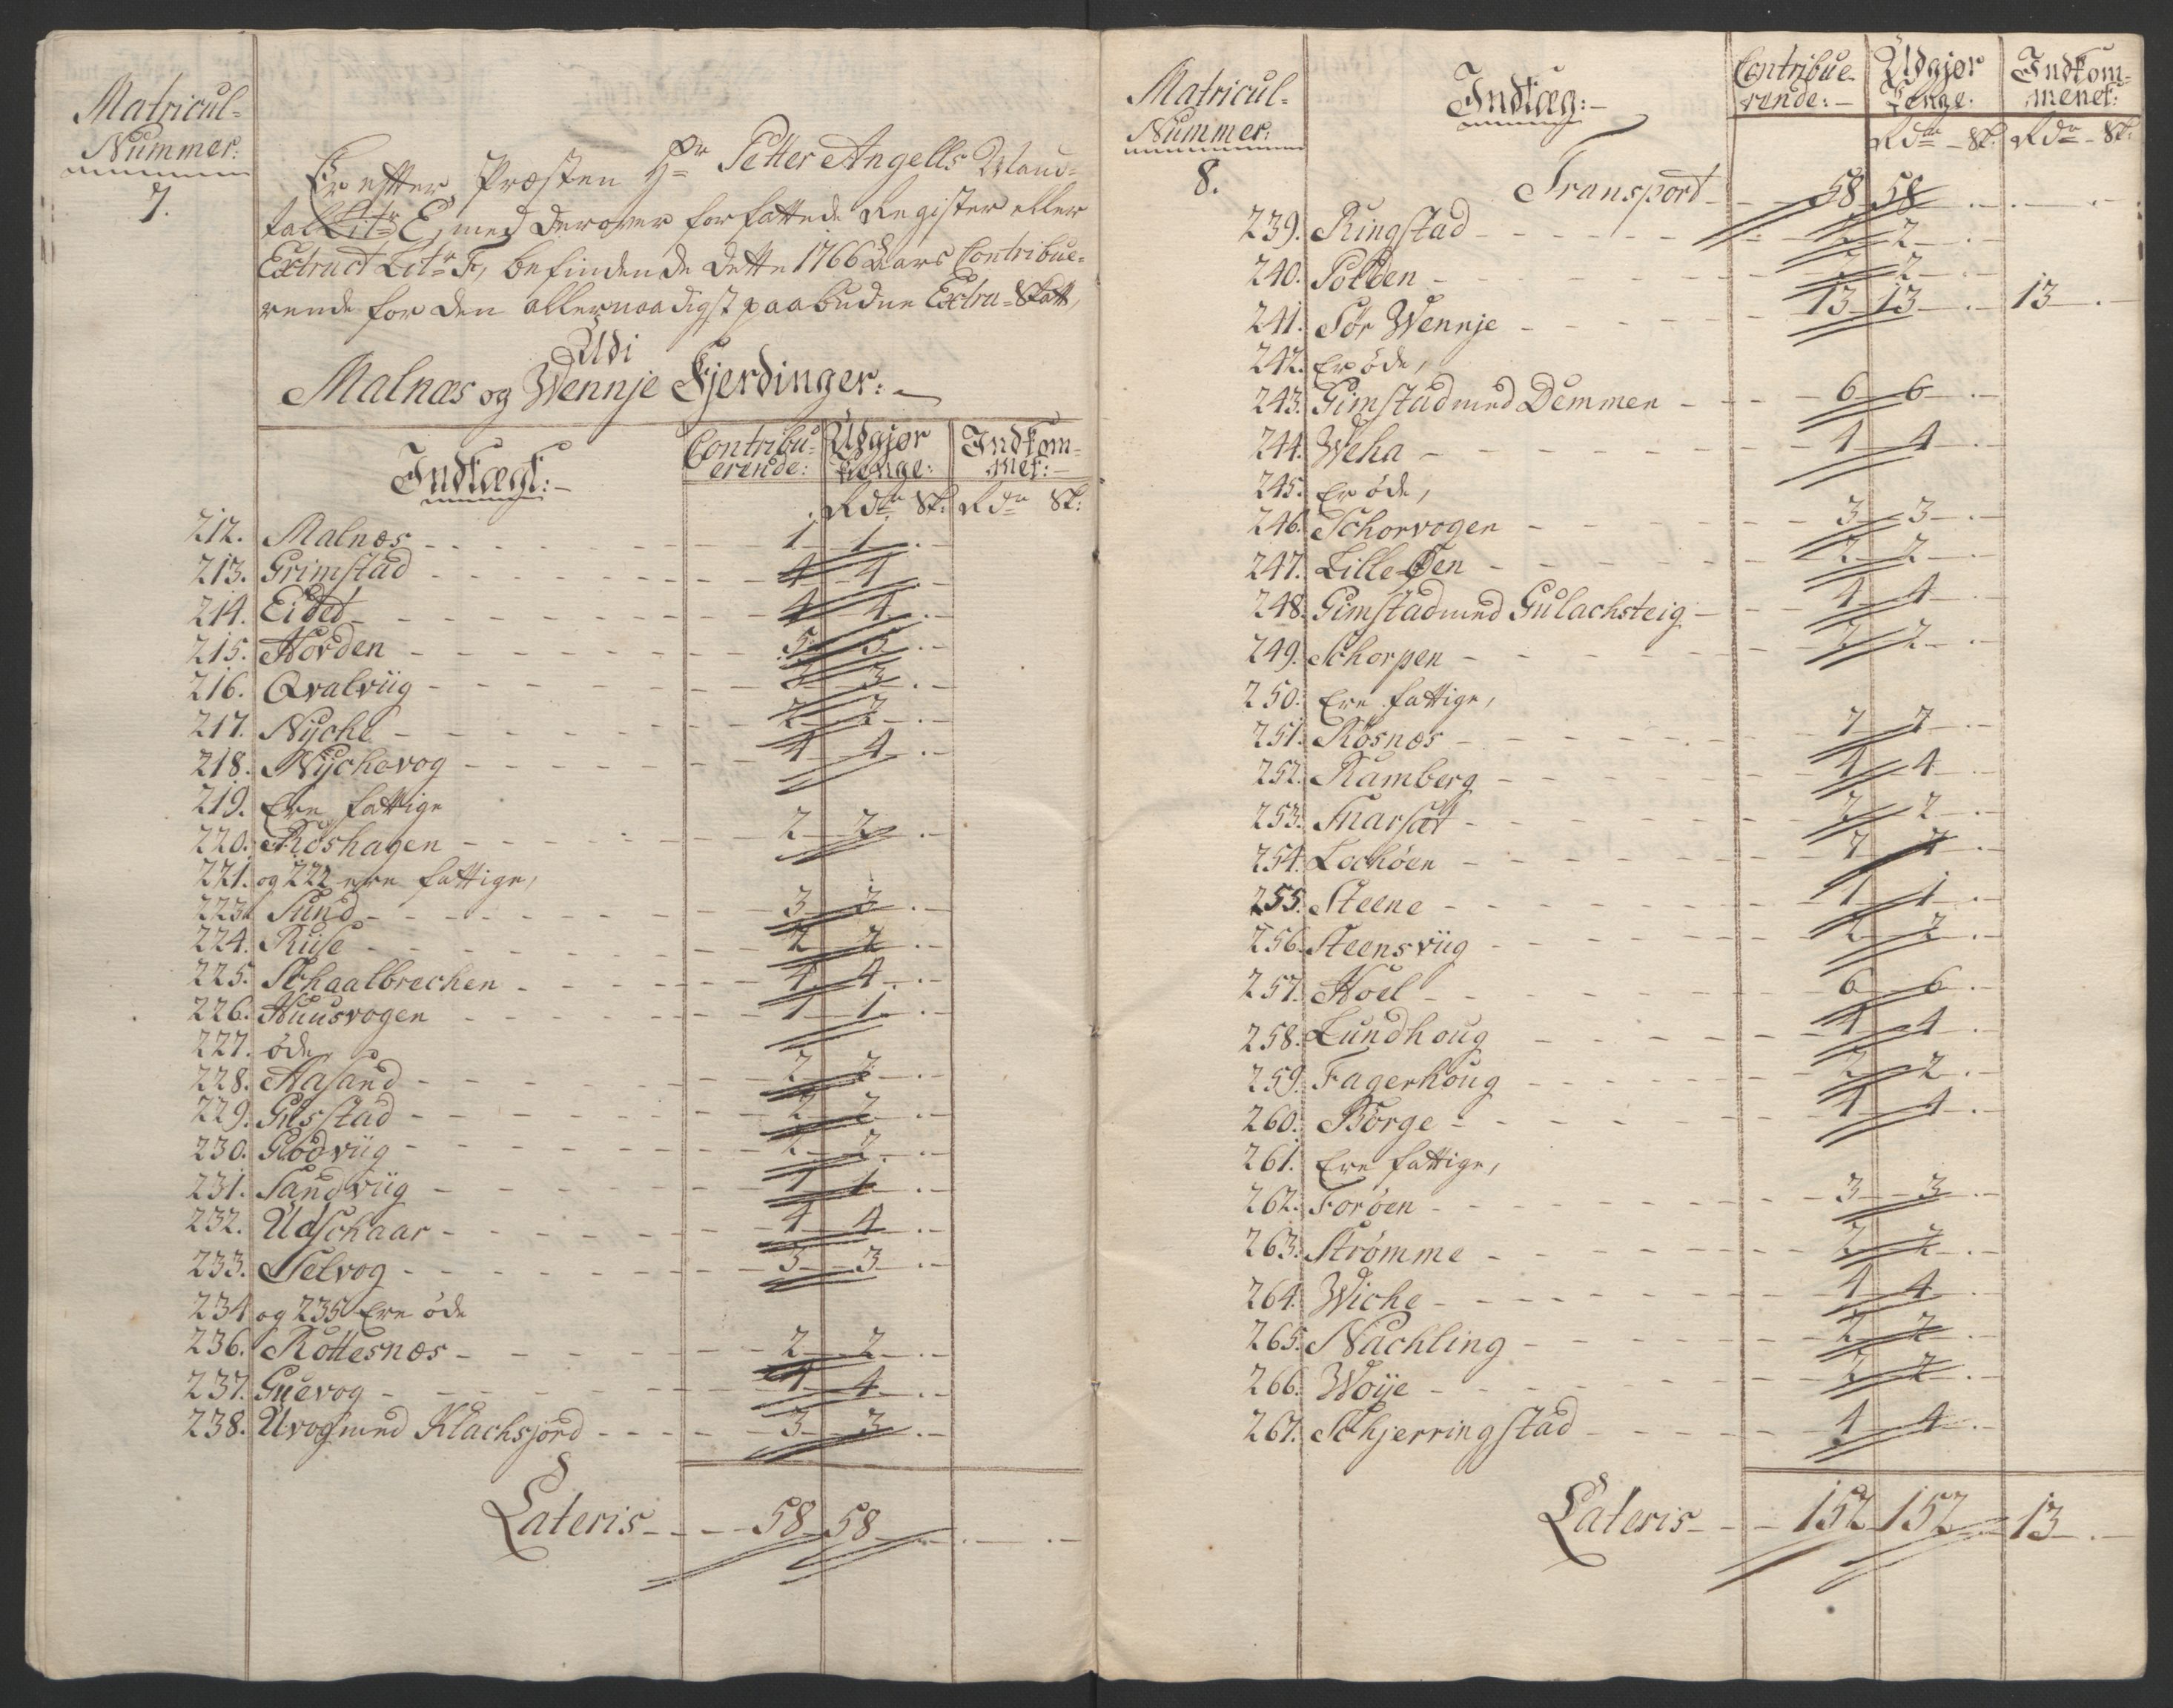 Matricul-
Nummer:
7.
Er efter Præsten Hr Petter Angells Mand-
tal Litr E, med derover forfattede Register eller
Extract Litr F, befindende dette 1766 Aars Contribue-
rende for den allernaadigst paabudne Extra-Skatt,
Udi
Malnæs og Wennje Fjerdinger:
Indtægt: Contribu- erende: Udgjør Penge: Indkom- met:
Rdr Sk: Rdr Sk:
212. Malnæs 1 1 . -
213. Grimstad 4 4 . -
214. Eidet 4 4 . -
215. Horden 5 5 . -
216. Qvalviig 3 3 . -
217. Nyche 2 2 . -
218. Nychevog 4 4 . -
219. Ere fattige
220. Roshagen 2 2 . -
221. og 222 ere fattige,
223. Sund 3 3 . -
224. Riise 2 2 . -
225. Schaalbrechen 4 4 . -
226. Huusvogen 1 1 . -
227. öde
228. Aasand 2 2 . -
229. Gusstad 2 2 . -
230. Flodviig 2 2 . -
231. Sandviig 1 1 . -
232. Udschaar 4 4 . -
233. Selvog 3 3 . -
234 og 235 Ere öde
236. Rottesnæs 2 2 . -
237. Guevog 4 4 . -
238. Uvog med Klachsjord 3 3 . -
Lateris 58 58 . - . -
Matricul-
Nummer:
8.
Indtæg: Contribue- rende: Udgjør Penge: Indkom- menet:
Rdr Sk: Rdr Sk:
Transport 58 58 . - . -
239. Ringstad 2 2 . -
240. Polden 2 2 . -
241. Sör Wennje 13 13 . - 13 . -
242. Er öde,
243. Gimstad med Demmen 6 6 . -
244. Weha 4 4 . -
245. Er öde,
246. Schorvogen 3 3 . -
247. Lille Öen 2 2 . -
248. Gimstad med Gulachsteig 4 4 . -
249. Schorpen 2 2 . -
250. Ere fattige,
251. Rösnæs 7 7 . -
252. Ramberg 4 4 . -
253. Snarsæt 2 2 . -
254. Lochöen 7 7 . -
255. Steene 1 1 . -
256. Steensviig 2 2 . -
257. Hoel 6 6 . -
258. Lundhoug 4 4 . -
259. Fagerhoug 2 2 . -
260. Börge 4 4 . -
261. Ere fattige,
262. Foröen 3 3 . -
263. Strömme 2 2 . -
264. Wiche 4 4 . -
265. Nachling 2 2 . -
266. Woije 2 2 . -
267. Schjerringstad 4 4 . -
Lateris 152 152 . - 13 . -